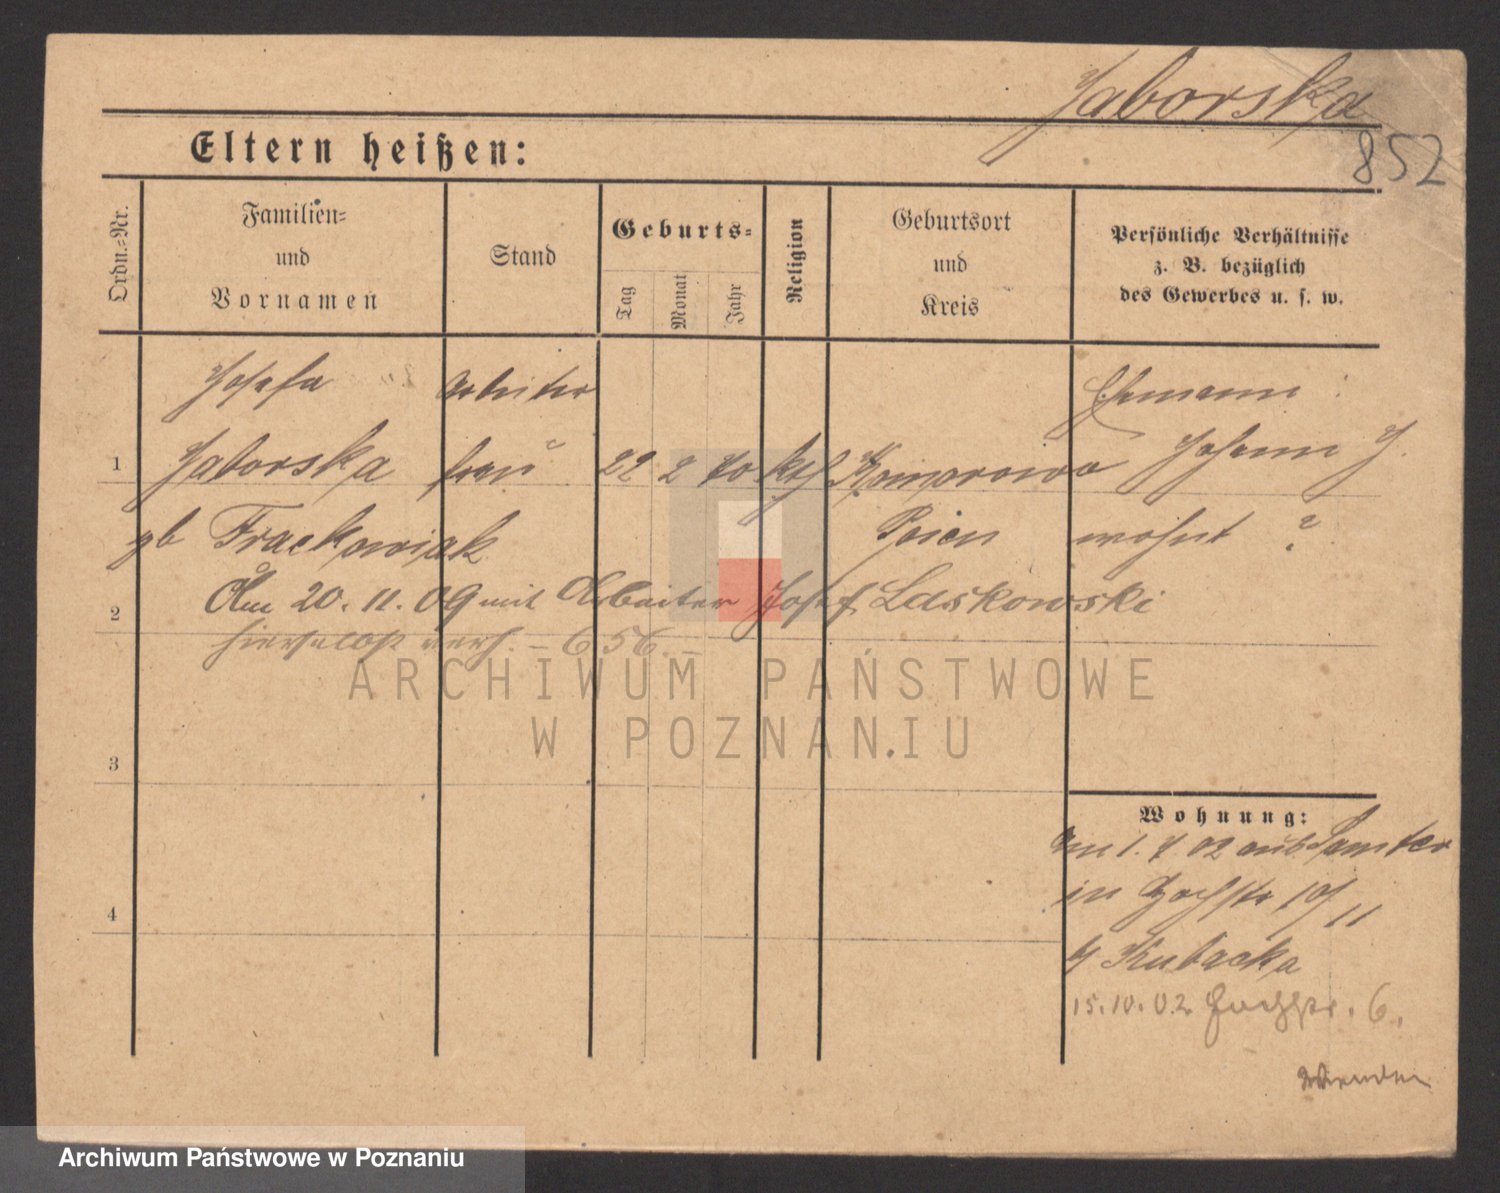 Jaborska
852
Eltern heißen:
Ordn.=Nr.
Familien=
und
Vornamen
Stand
Geburts=
Tag
Monat
Jahr
Religion
Geburtsort
und
Kreis
Persönliche Verhältnisse
z. B. bezüglich
des Gewerbes u. s. w.
Josefa Arbeiter Ehemann :
1 Jaborska frau 22 2 70 kth Komorowo Johann J.
gb Frackowiak wohnt ?
2 Am 20. 11. 09 mit Arbeiter Josef Laskowski
hierselbst verh. – 656. –
3
4
Wohnung:
am 1. 7 02 aus Samter
in Hochstr 10/11
b/ Kubacka
15.10.02 Hochstr. 6.
Wenden
ARCHIWUM PAŃSTWOWE
W POZNANIU
Archiwum Państwowe w Poznaniu